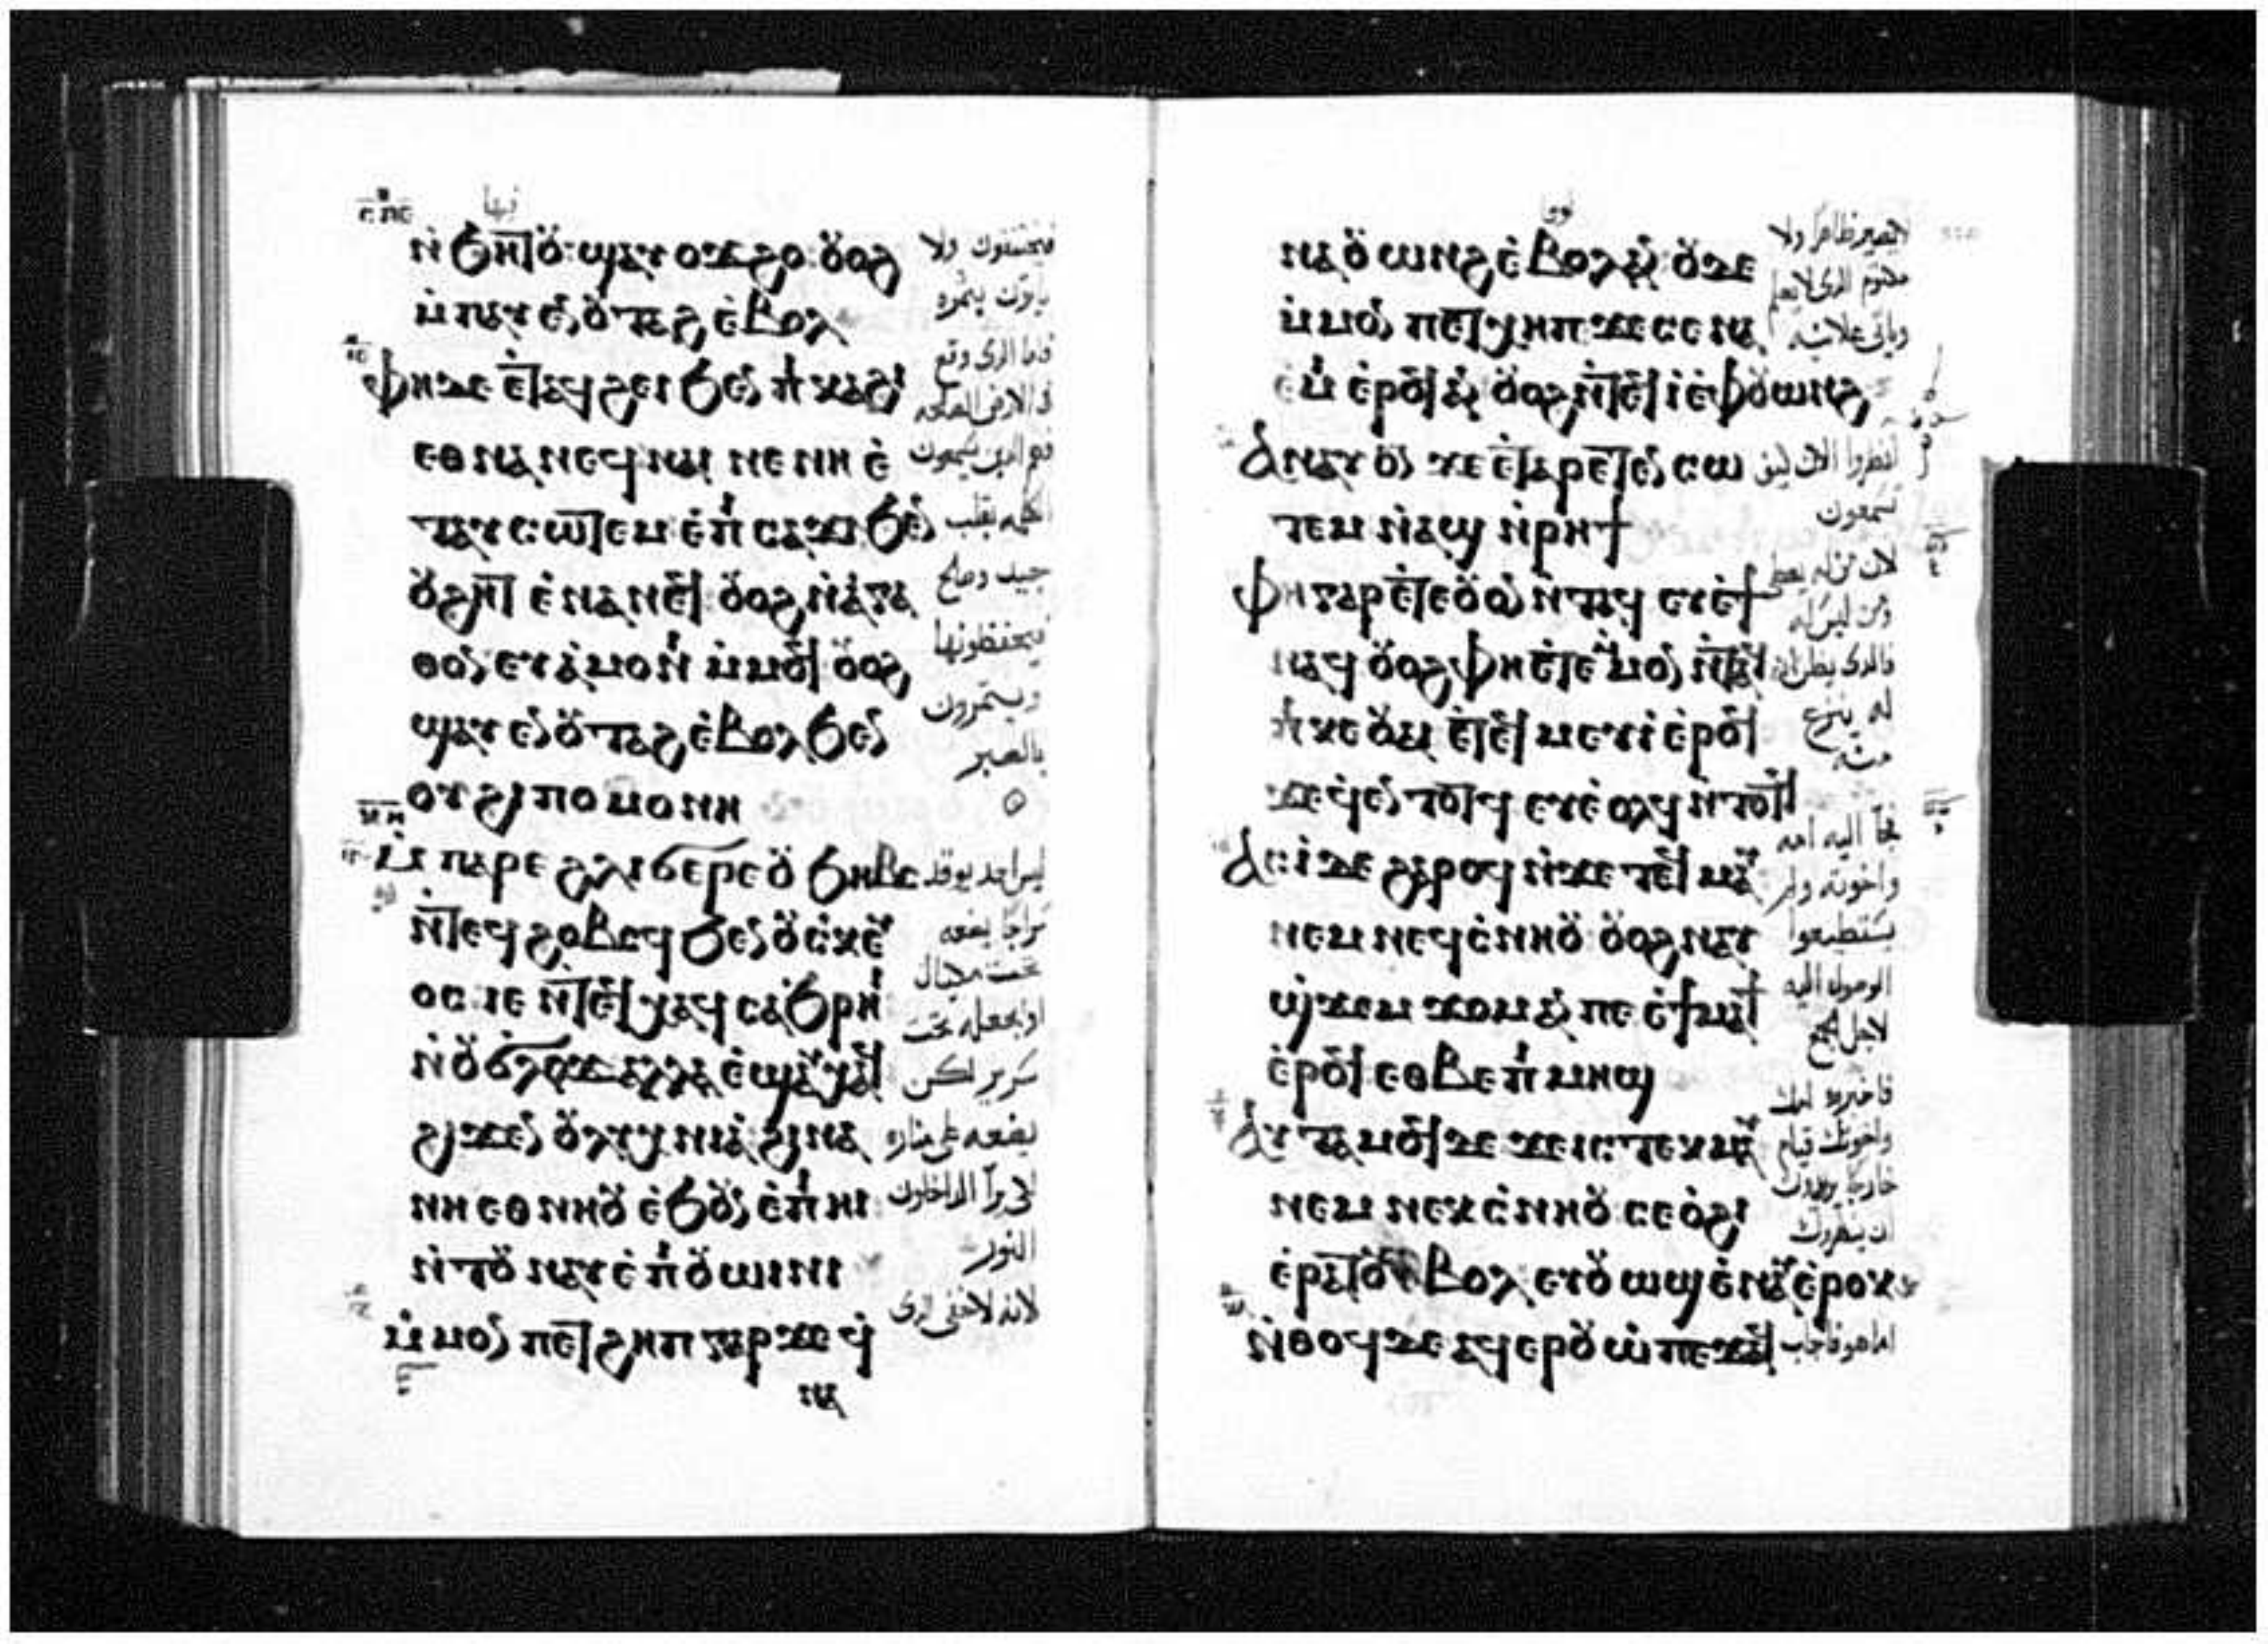 ⲥⲡⲉ
فيها
ⲛϧⲏⲧⲟⲩ ϣⲁⲩⲟϫϩⲟ ⲟⲩⲟϩ
ⲙⲡⲁⲩⲉⲛⲟⲩⲧⲁϩ ⲉⲃⲟⲗ
ⲫⲏ ⲇⲉ ⲉⲧⲁϥϩⲉⲓ ϧⲉⲛ ⲡⲕⲁϩⲓ
ⲉⲑⲛⲁⲛⲉϥ ⲛⲁⲓ ⲛⲉ ⲛⲏ ⲉ
ⲧⲁⲩⲥⲱⲧⲉⲙ ⲉⲡⲥⲁϫⲓ ϧⲉⲛ
ⲟⲩϩⲏⲧ ⲉⲛⲁⲛⲉϥ ⲟⲩⲟϩ ⲛⲁⲅⲁ
ⲑⲟⲛ ⲉⲩⲁⲙⲟⲛⲓ ⲙⲙⲟϥ ⲟⲩⲟϩ
ϣⲁⲩⲉⲛⲟⲩⲧⲁϩ ⲉⲃⲟⲗ ϧⲉⲛ
ⲟⲩϩⲩⲡⲟⲙⲟⲛⲏ
ⲙⲡⲁⲣⲉ ϩⲗⲓ ϭⲉⲣⲉ ⲟⲩϧⲏⲃⲥ
ⲛⲧⲉϥϩⲟⲃⲥϥ ϧⲉⲛ ⲟⲩⲥⲕⲉⲩ
ⲟⲥ ⲓⲉ ⲛⲧⲉϥⲭⲁϥ ⲥⲁϧⲣⲏⲓ
ⲛⲟⲩϭⲗⲟϫ ⲁⲗⲗⲁ ⲉϣⲁⲩⲭⲁϥ
ϩⲓϫⲉⲛ ⲟⲩⲗⲩⲭⲛⲓⲁ ϩⲓⲛⲁ
ⲛⲏ ⲉⲑⲛⲏⲟⲩ ⲉϧⲟⲩⲛ ⲉⲡⲏⲓ
ⲛⲧⲟⲩⲛⲁⲩ ⲉⲡⲟⲩⲱⲓⲛⲓ
ⲙⲙⲟⲛ ⲡⲉⲧϩⲏⲡ ⲅⲁⲣ ϫⲉ ϥ
ⲛⲁ
فيخنقونك ولا
ياتون بثمره
فاما الذى وقع
فى الارض الصالحه
فهم الذين يسمعون
الكلمه بقلب
جيد وصالح
فيحفظونها
ويثمرون
بالصبر
ليس احد يوقد
سراجا يضعه
او يجعله تحت
سرير لكن
يضعه على مناره
لكى يرا الداخلون
النور
لانه لا خفى الذى
ⲛⲁⲟⲩⲱⲛϩ ⲉⲃⲟⲗ ⲁⲛ ⲟⲩⲇⲉ
ⲙⲙⲟⲛ ⲡⲉⲧⲭⲏⲡ ϫⲉ ⲥⲉⲛⲁ
ⲉⲙⲓ ⲉⲣⲟϥ ⲁⲛ ⲟⲩⲟϩ ⲛⲧⲉϥⲓ ⲉⲫⲟⲩⲱⲛϩ
ⲁⲛⲁⲩ ⲟⲩⲛ ϫⲉ ⲉⲧⲁⲣⲉⲧⲉⲛⲥⲱ
ⲧⲉⲙ ⲛⲁϣ ⲛⲣⲏϯ
ⲫⲏ ⲅⲁⲣ ⲉⲧⲉ ⲟⲩⲟⲛ ⲛⲧⲁϥ ⲉⲩⲉϯ
ⲛⲁϥ ⲟⲩⲟϩ ⲫⲏ ⲉⲧⲉ ⲙⲙⲟⲛ ⲛⲧⲁϥ
ⲡⲕⲉⲟⲩⲁⲓ ⲉⲧⲉϥⲙⲉⲩⲓ ⲉⲣⲟϥ
ϫⲉ ϥⲉⲛⲧⲟⲧϥ ⲉⲩⲉⲟⲗϥ ⲛⲧⲟⲧϥ
ⲁⲥⲓ ⲇⲉ ϩⲁⲣⲟϥ ⲛϫⲉ ⲧⲉϥⲙⲁⲩ
ⲛⲉⲙ ⲛⲉϥⲥⲛⲏⲟⲩ ⲟⲩⲟϩ ⲛⲁⲩ
ϣϫⲉⲙϫⲟⲙ ⲁⲛ ⲡⲉ ⲉϯⲙⲁϯ
ⲉⲣⲟϥ ⲉⲑⲃⲉ ⲡⲙⲏϣ
ⲁⲩⲧⲁⲙⲟϥ ⲇⲉ ϫⲉ ⲓⲥ ⲧⲉⲕⲙⲁⲩ
ⲛⲉⲙ ⲛⲉⲕⲥⲛⲏⲟⲩ ⲥⲉⲟϩⲓ
ⲉⲣⲁⲧⲟⲩ ⲥⲁⲃⲟⲗ ⲉⲩⲟⲩⲱϣ ⲉⲛⲁⲩ ⲉⲣⲟⲕ
ⲛⲑⲟϥ ⲇⲉ ⲁϥⲉⲣⲟⲩⲱ ⲡⲉϫⲁϥ
لا يصير ظاهرا ولا
مكتوم الذى لا يعلم
وياتى علانيه
انظروا الان كيف
تسمعون
لان من له يعطى
ومن ليس له
فالذى يظن ان
له ينزع
منه
جا اليه امه
واخوته ولم
يستطيعوا
الوصول اليه
لاجل الجمع
فاخبروه امك
واخوتك قيام
خارجا يريدون
ان ينظروك
اما هو فاجاب